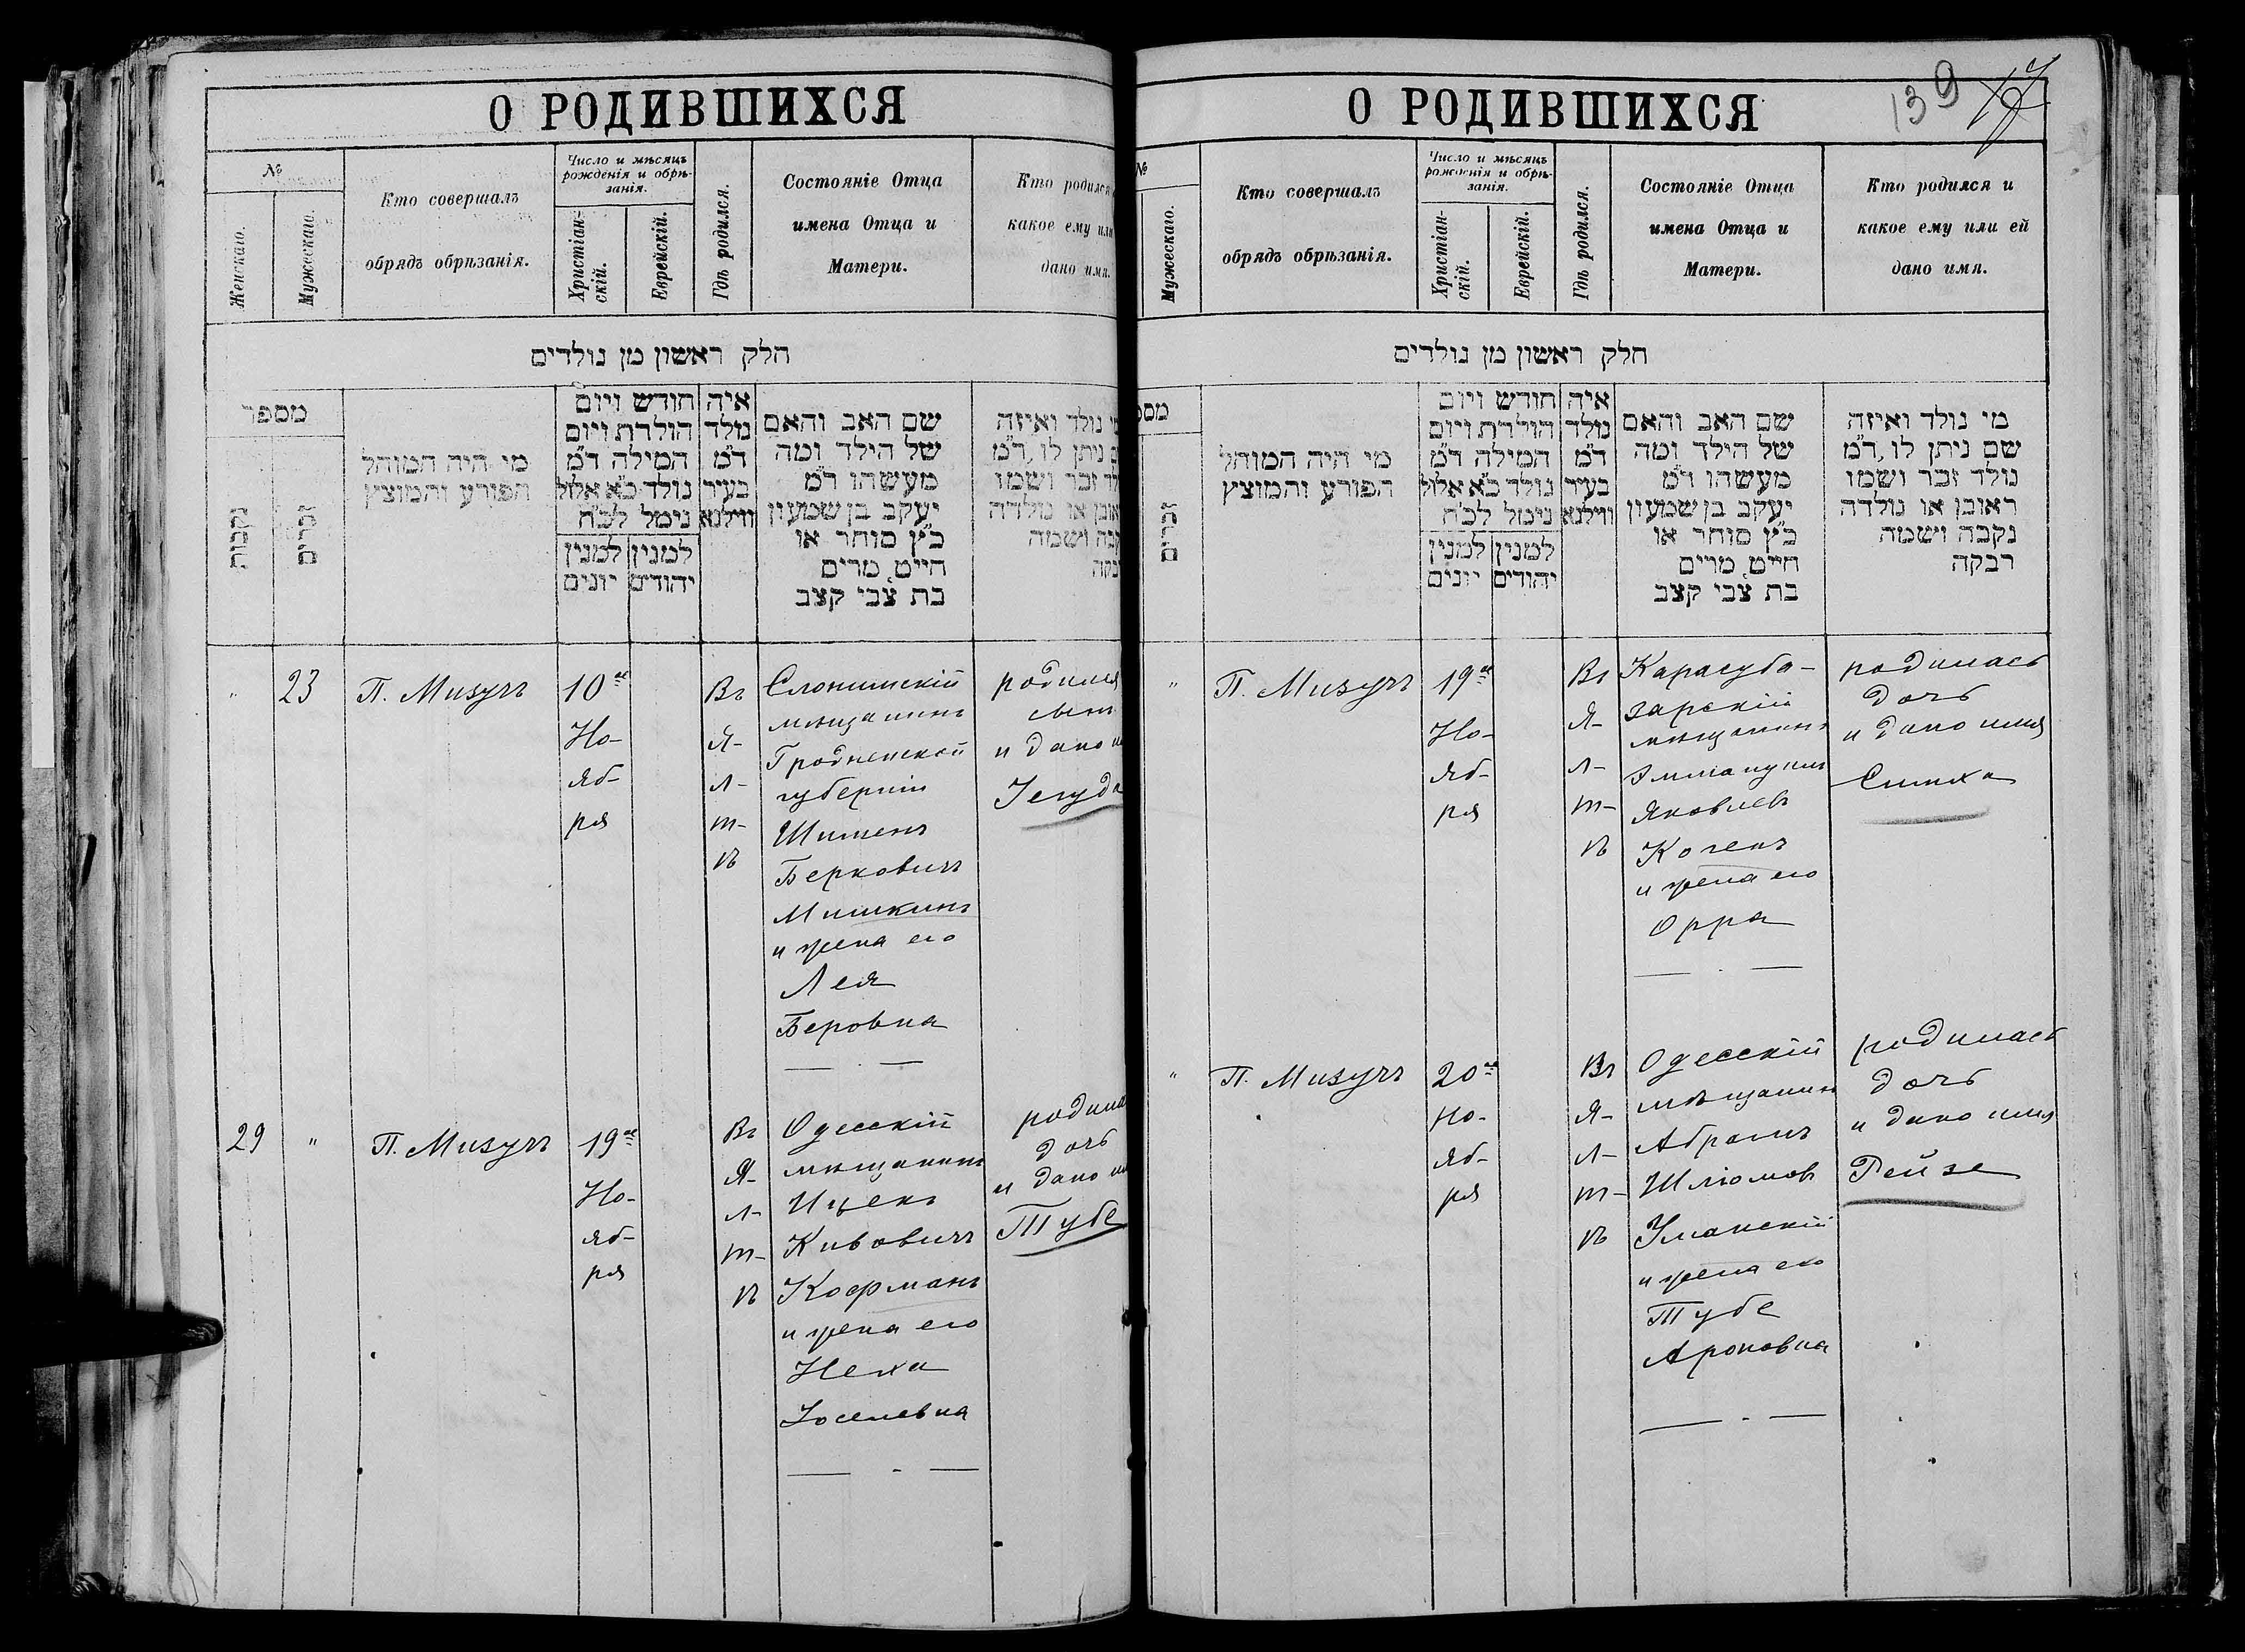 О РОДИВШИХСЯ
№
Женскаго.
Мужескаго.
Кто совершалъ
обрядъ обрѣзанія.
Число и мѣсяцъ
рожденія и обрѣ-
занія.
Христіан-
скій.
Еврейскій.
Гдѣ родился.
Состояніе Отца
имена Отца и
Матери.
Кто родился
какое ему или
дано имя.
חלק ראשון מן נולדים
מספר
נקבות
זכרים
מי היה המוהל
הפורע והמוצץ
חודש ויום
הולדת ויום
המילה ד״מ
נולד כ״א אלול
נימל לכ״ח
למנין
יונים
למנין
יהודים
איה
נולד
ד״מ
בעיר
ווילנא
שם האב והאם
של הילד ומה
מעשהו ד״מ
יעקב בן שמעון
כ״ץ סוחר או
חייט, מרים
בת צבי קצב
נולד ואיזה
ניתן לו, ד״מ
זכר ושמו
או נולדה
ושמה
" 23 П. Мизучъ
10го
Но-
яб-
ря
Въ
Я-
л-
т-
ѣ
Слонимскій
мѣщанинъ
Гродненской
губерніи
Шименъ
Берковичъ
Мишкинъ
и жена его
Лея
Беровна
родился
сынъ
и дано
Іегуда
29 " П. Мизучъ
19го
Но-
яб-
ря
Въ
Я-
л-
т-
ѣ
Одесскій
мѣщанинъ
Ицекъ
Кивовичъ
Кофманъ
и жена его
Неха
Іоселевна
родила
дочь
и дано
Тубе
О РОДИВШИХСЯ
139
№
Мужескаго.
Кто совершалъ
обрядъ обрѣзанія.
Число и мѣсяцъ
рожденія и обрѣ-
занія.
Христіан-
скій.
Еврейскій.
Гдѣ родился.
Состояніе Отца
имена Отца и
Матери.
Кто родился и
какое ему или ей
дано имя.
חלק ראשון מן נולדים
זכרים
מי היה המוהל
הפורע והמוצץ
חודש ויום
הולדת ויום
המילה ד״מ
נולד כ״א אלול
נימל לכ״ח
למנין
יונים
למנין
יהודים
איה
נולד
ד״מ
בעיר
ווילנא
שם האב והאם
של הילד ומה
מעשהו ד״מ
יעקב בן שמעון
כ״ץ סוחר או
חייט, מרים
בת צבי קצב
מי נולד ואיזה
שם ניתן לו, ד״מ
נולד זכר ושמו
ראובן או נולדה
נקבה ושמה
רבקה
" П. Мизучъ
19го
Но-
яб-
ря
Въ
Я-
л-
т-
ѣ
Карасуба-
зарскій
мѣщанинъ
Эммануилъ
Яковлевъ
Когенъ
и жена его
Орра
родилась
дочь
и дано имя
Симха
" П. Мизучъ
20го
но-
яб-
ря
Въ
Я-
л-
т-
ѣ
Одесскій
мѣщанинъ
Абрамъ
Шліомовъ
Уманскій
и жена его
Тубе
Ароновна
родилась
дочь
и дано имя
Рейзе